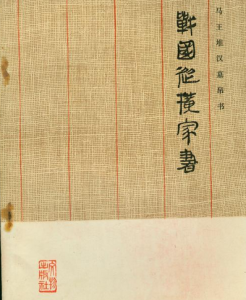 马王堆汉墓帛书
戰國從橫家書
文物
出版社